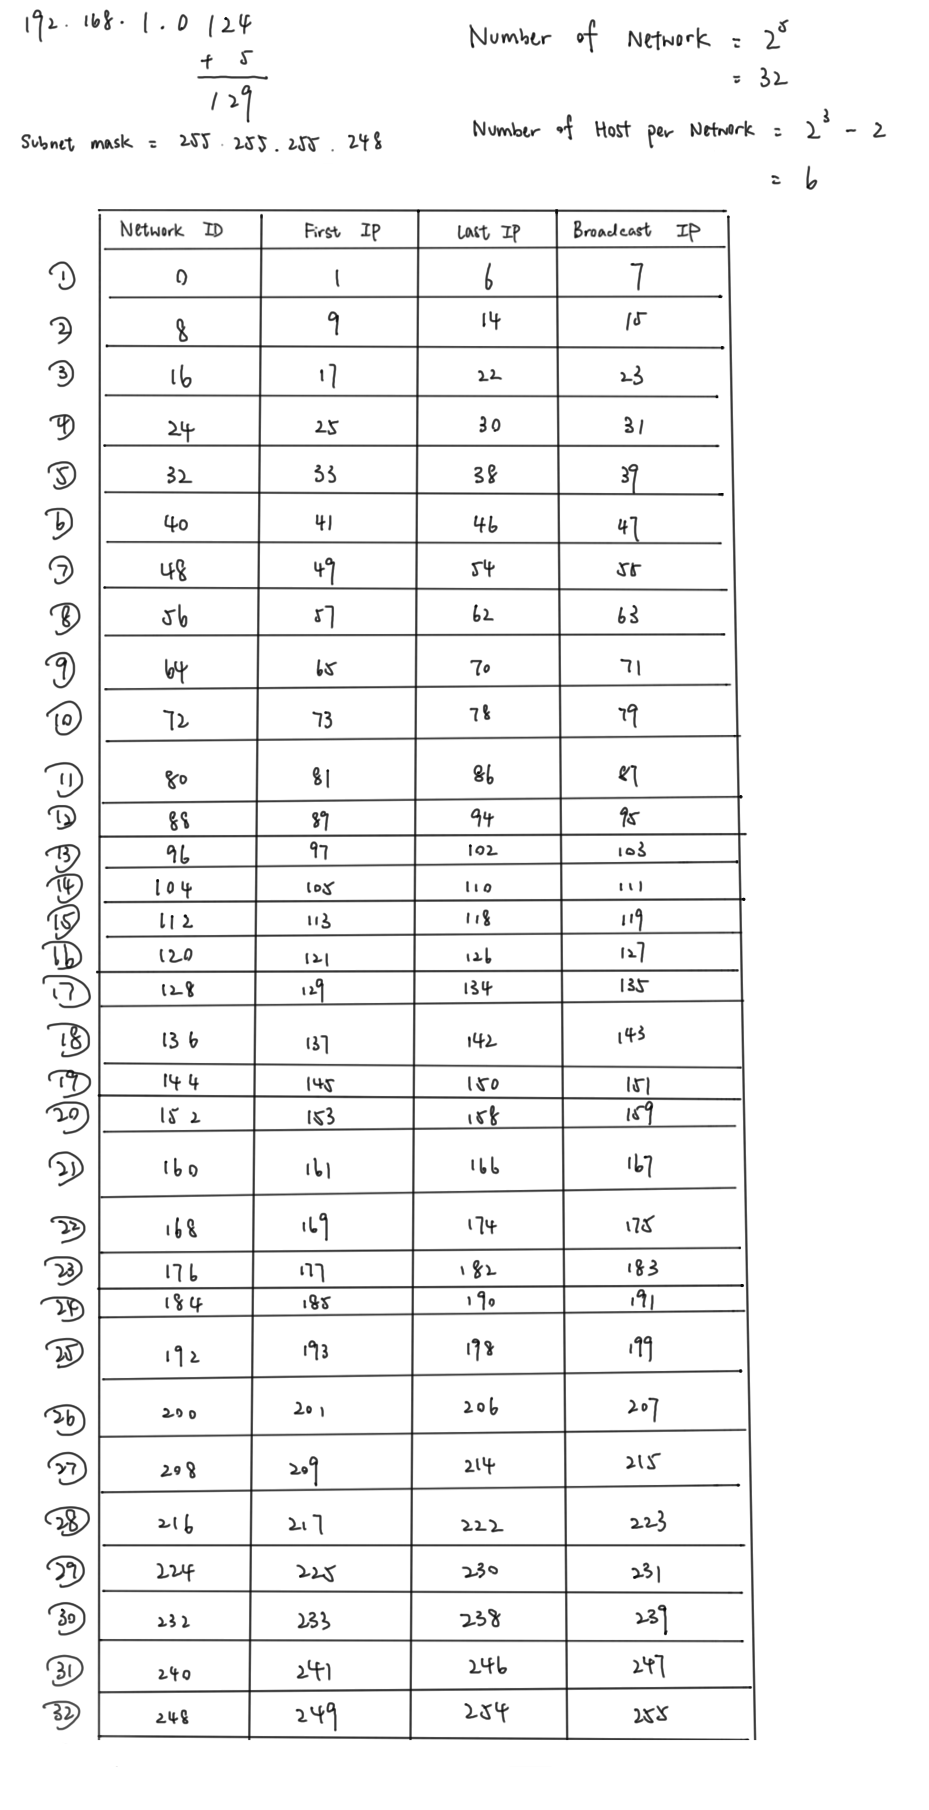 192.168.1.0 /24
+ 5
/29
Subnet mask = 255.255.255.248
Number of Network = 2^5
= 32
Number of Host per Network = 2^3 - 2
= 6
Network ID First IP Last IP Broadcast IP
① 0 1 6 7
② 8 9 14 15
③ 16 17 22 23
④ 24 25 30 31
⑤ 32 33 38 39
⑥ 40 41 46 47
⑦ 48 49 54 55
⑧ 56 57 62 63
⑨ 64 65 70 71
⑩ 72 73 78 79
⑪ 80 81 86 87
⑫ 88 89 94 95
⑬ 96 97 102 103
⑭ 104 105 110 111
⑮ 112 113 118 119
⑯ 120 121 126 127
⑰ 128 129 134 135
⑱ 136 137 142 143
⑲ 144 145 150 151
⑳ 152 153 158 159
㉑ 160 161 166 167
㉒ 168 169 174 175
㉓ 176 177 182 183
㉔ 184 185 190 191
㉕ 192 193 198 199
㉖ 200 201 206 207
㉗ 208 209 214 215
㉘ 216 217 222 223
㉙ 224 225 230 231
㉚ 232 233 238 239
㉛ 240 241 246 247
㉜ 248 249 254 255